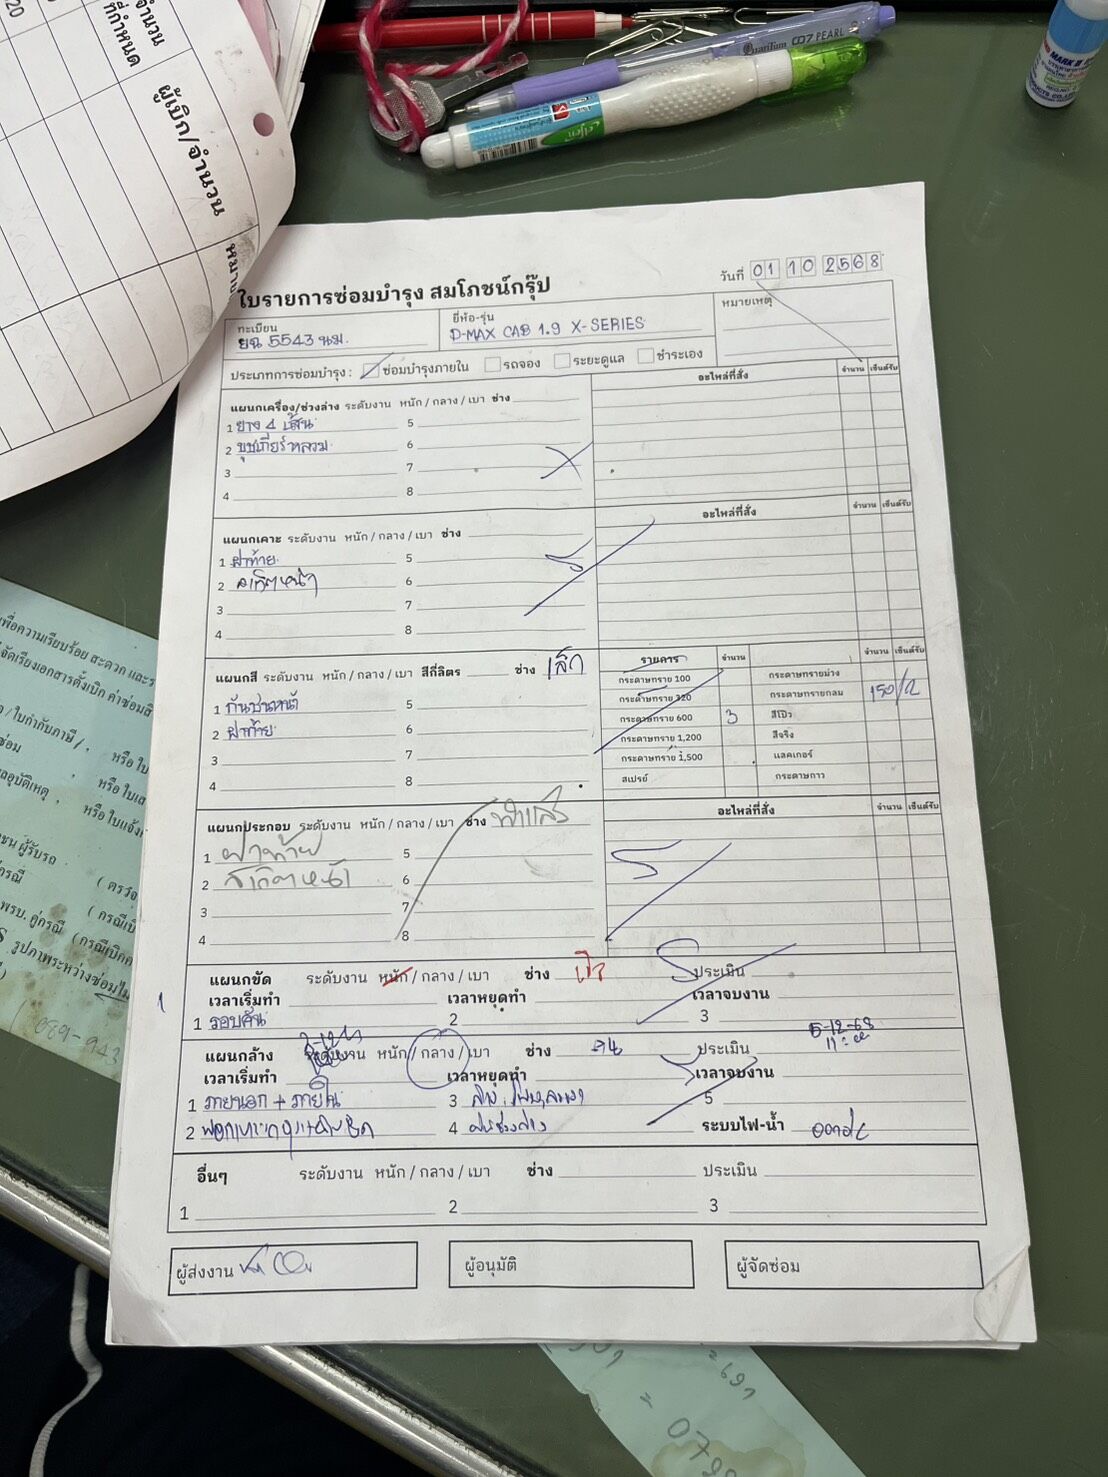 จำนวน
ที่กำหนด
20
ผู้เบิก/จำนวน
หมาย
QuanTum 007 PEARL
MARK II
ใบรายการซ่อมบำรุง สมโภชน์กรุ๊ป
วันที่ 01 10 2568
ทะเบียน
ยฉ 5543 นม.
ยี่ห้อ-รุ่น
D-MAX CAB 1.9 X-SERIES
หมายเหตุ
ประเภทการซ่อมบำรุง : ซ่อมบำรุงภายใน รถจอง ระยะดูแล ชำระเอง
อะไหล่ที่สั่ง จำนวน เซ็นต์รับ
แผนกเครื่อง/ช่วงล่าง ระดับงาน หนัก / กลาง / เบา ช่าง
1 ยาง 4 เส้น 5
2 บุชเกียร์หลวม 6
3 7
4 8
แผนกเคาะ ระดับงาน หนัก / กลาง / เบา ช่าง
อะไหล่ที่สั่ง จำนวน เซ็นต์รับ
1 ฝาท้าย 5
2 สเกิตหน้า 6
3 7
4 8
แผนกสี ระดับงาน หนัก / กลาง / เบา สีกี่ลิตร ช่าง เล็ก
1 กันชนหน้า 5
2 ฝาท้าย 6
3 7
4 8
รายการ จำนวน จำนวน เซ็นต์รับ
กระดาษทราย 100 กระดาษทรายม่วง
กระดาษทราย 320 กระดาษทรายกลม 150/2
กระดาษทราย 600 3 สีโป๊ว
กระดาษทราย 1,200 สีจริง
กระดาษทราย 1,500 แลคเกอร์
สเปรย์ กระดาษกาว
แผนกประกอบ ระดับงาน หนัก / กลาง / เบา ช่าง
อะไหล่ที่สั่ง จำนวน เซ็นต์รับ
1 ฝาท้าย 5
2 สเกิตหน้า 6
3 7
4 8
แผนกขัด ระดับงาน หนัก / กลาง / เบา ช่าง ประเมิน
เวลาเริ่มทำ เวลาหยุดทำ เวลาจบงาน
1 รอบคัน 2 3
แผนกล้าง ระดับงาน หนัก / กลาง / เบา ช่าง ประเมิน 5-12-68
เวลาเริ่มทำ เวลาหยุดทำ เวลาจบงาน
1 ภายนอก + ภายใน 3 5
2 4 ระบบไฟ-น้ำ
อื่นๆ ระดับงาน หนัก / กลาง / เบา ช่าง ประเมิน
1 2 3
ผู้ส่งงาน
ผู้อนุมัติ
ผู้จัดซ่อม
เพื่อความเรียบร้อย สะดวก และร
จัดเรียงเอกสารตั้งเบิก ค่าซ่อมสี
/ ใบกำกับภาษี / . หรือ ใบ
ซ่อม
หรือ ใบเส
อุบัติเหตุ , หรือ ใบแจ้ง
ชน ผู้รับรถ
กรณี ( ตรวจ
พรบ. คู่กรณี ( กรณีเบิก
รูปภาพระหว่างซ่อม
089-943